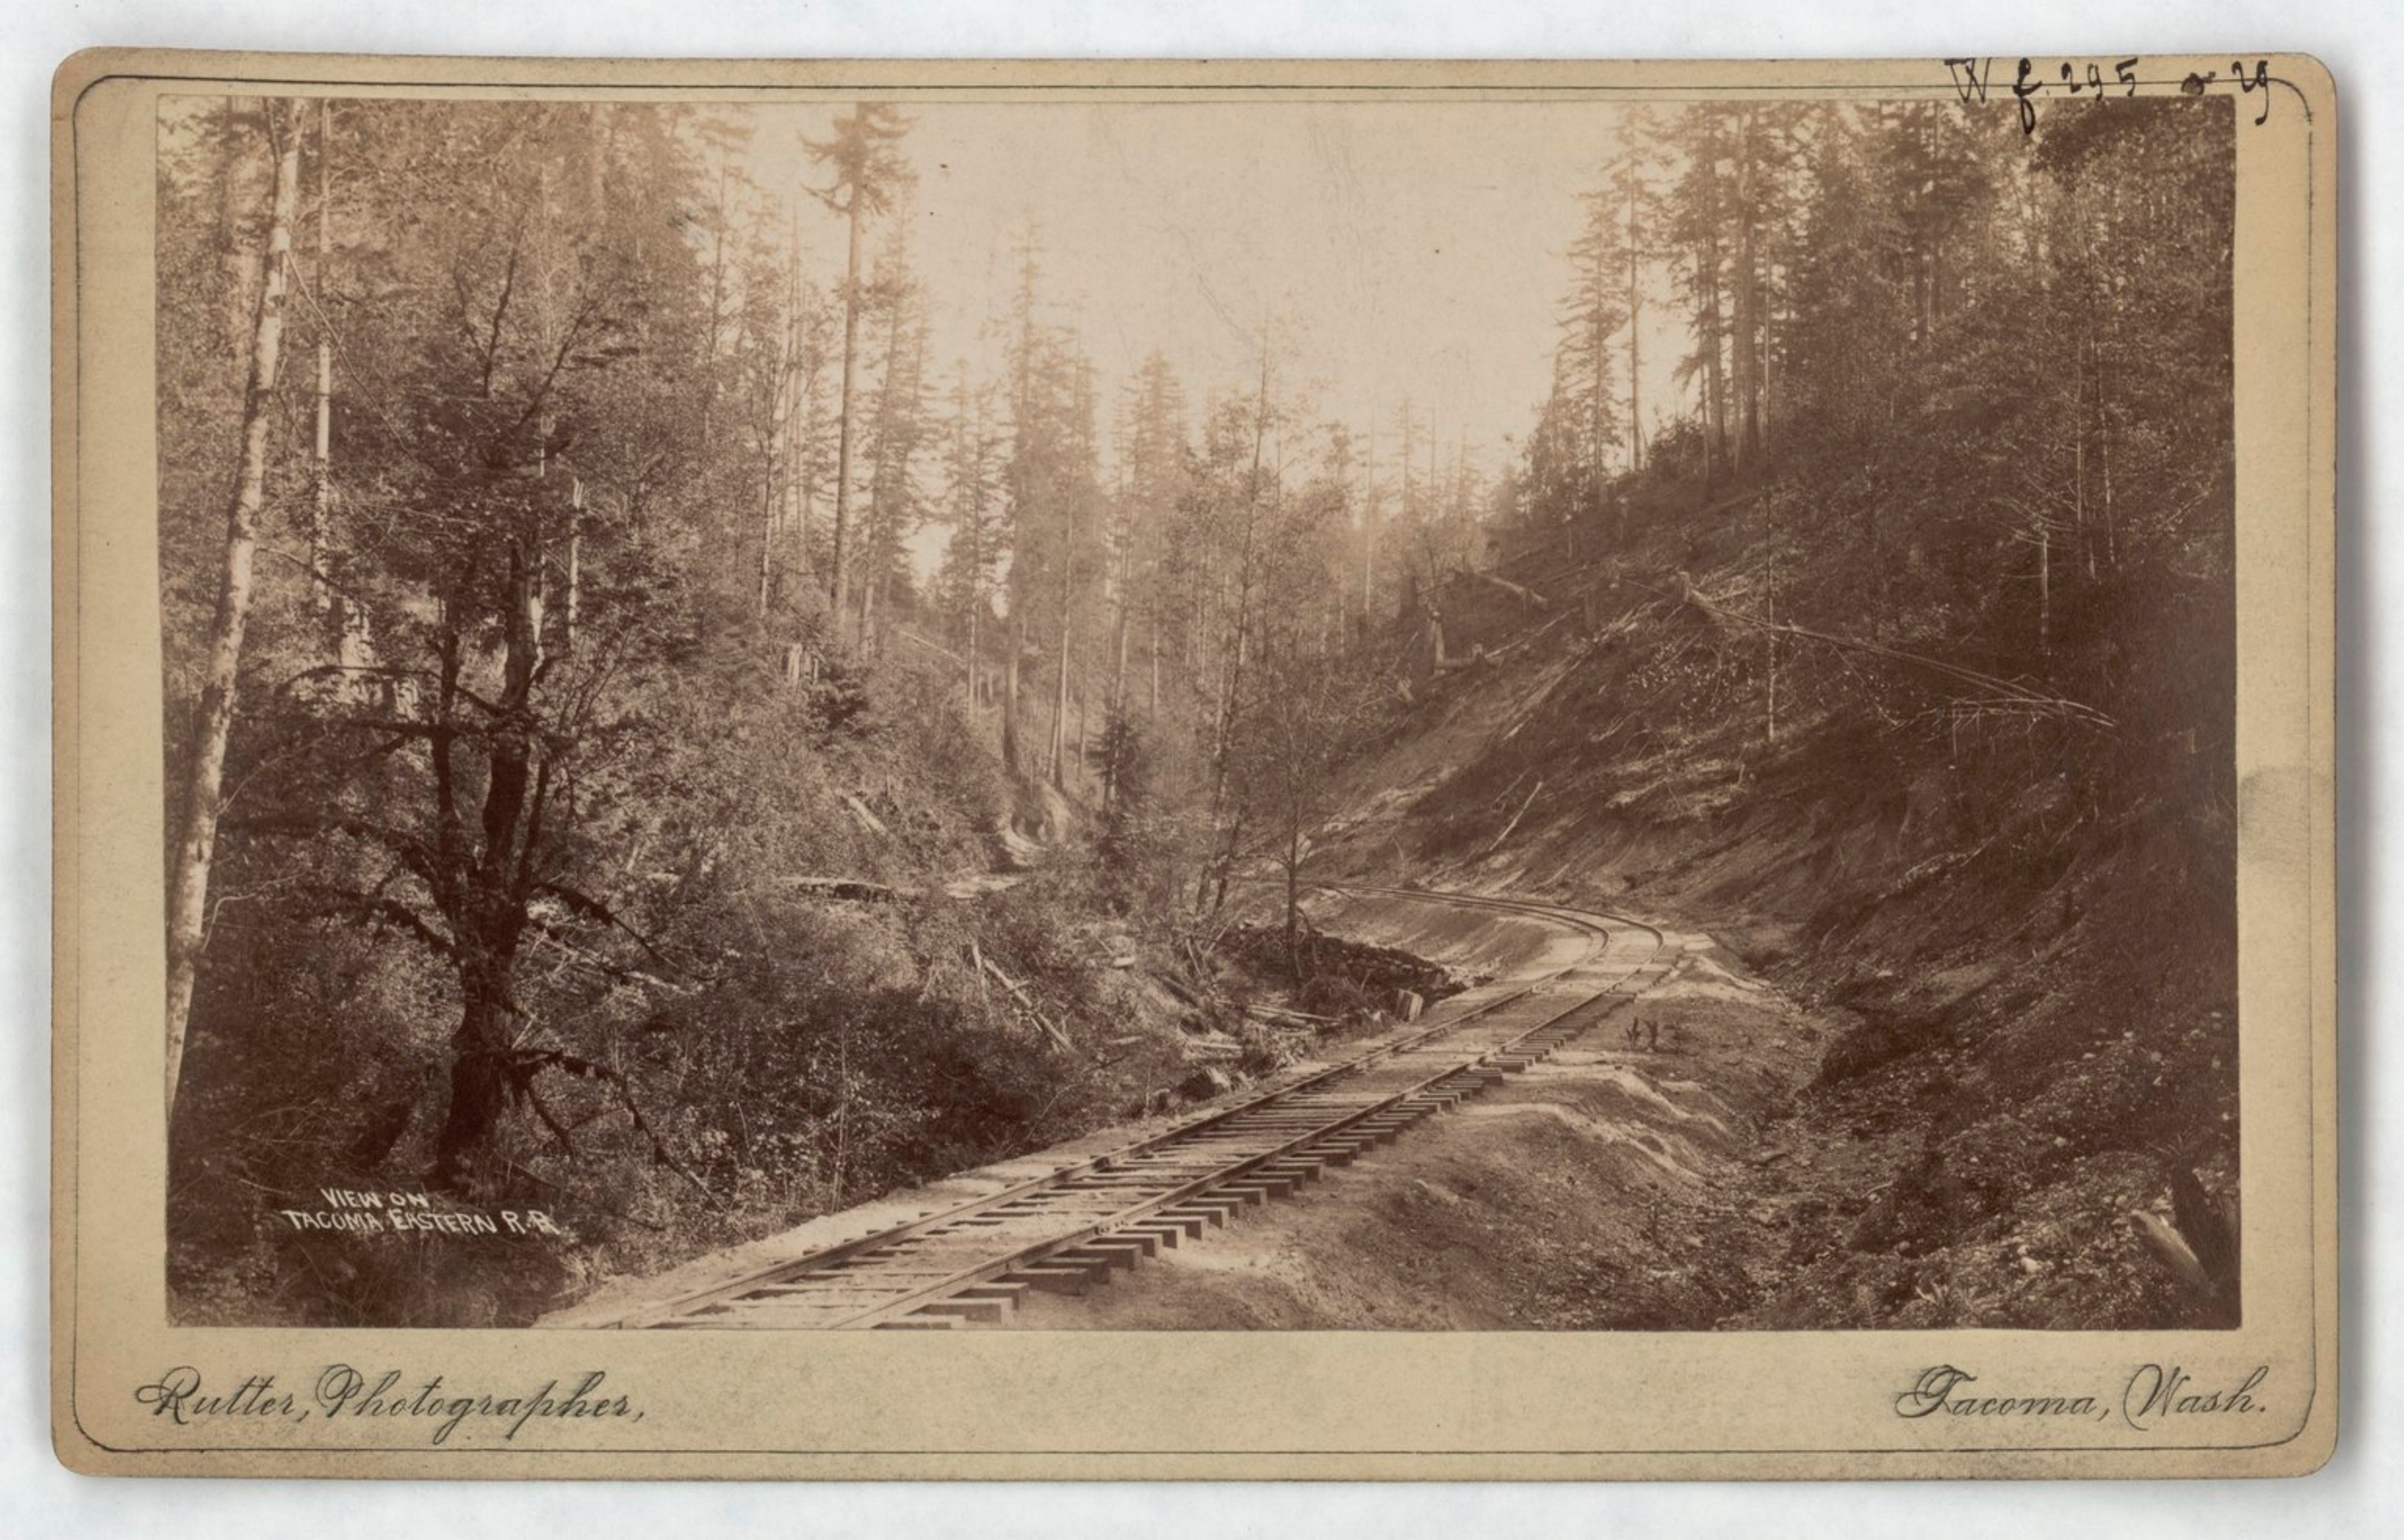 W f. 295
VIEW ON
TACOMA EASTERN R.R.
Rutter, Photographer,
Tacoma, Wash.